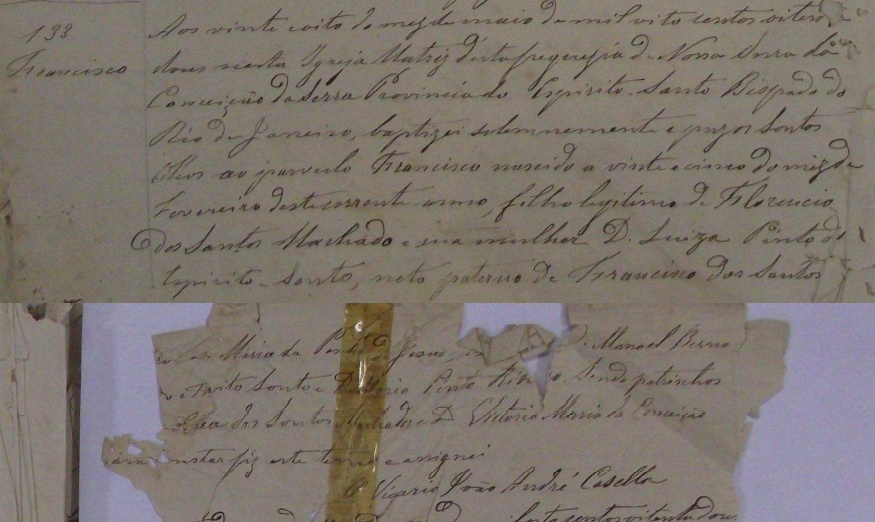 133
Francisco
Aos vinte e oito do mez de maio de mil oito centos oitenta e
dous nesta Igreja Matriz desta freguezia de Nossa Snra da
Conceição da Serra Provincia do Espirito-Santo Bispado do
Rio de Janeiro, baptizei solemnemente e puz os Santos
óleos ao parvulo Francisco nascido a vinte e cinco do mez de
Fevereiro deste corrente anno, filho legitimo de Florencio
dos Santos Machado e sua mulher D. Luiza Pinto do
Espirito-Santo, neto paterno de Francisco dos Santos
Maria da Penha de Jesus, Manoel
Santo e D. Maria Pinto Ribeiro. Sendo padrinhos
dos Santos Machado e D. Victoria Maria da Conceição
constar fiz este termo e assignei
O Vigario João André Casella
centos oitenta e dous